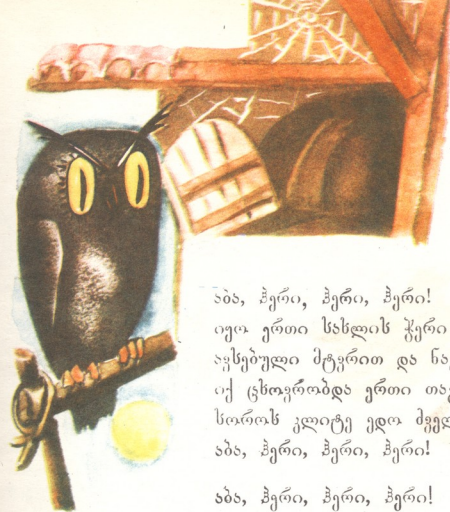 აბა, ჰერი, ჰერი, ჰერი!
იყო ერთი სახლის ჭერი
ავსებული მტვრით და
იქ ცხოვრობდა ერთი
სოროს კლიტე ედო
აბა, ჰერი, ჰერი, ჰერი!
აბა, ჰერი, ჰერი, ჰერი!